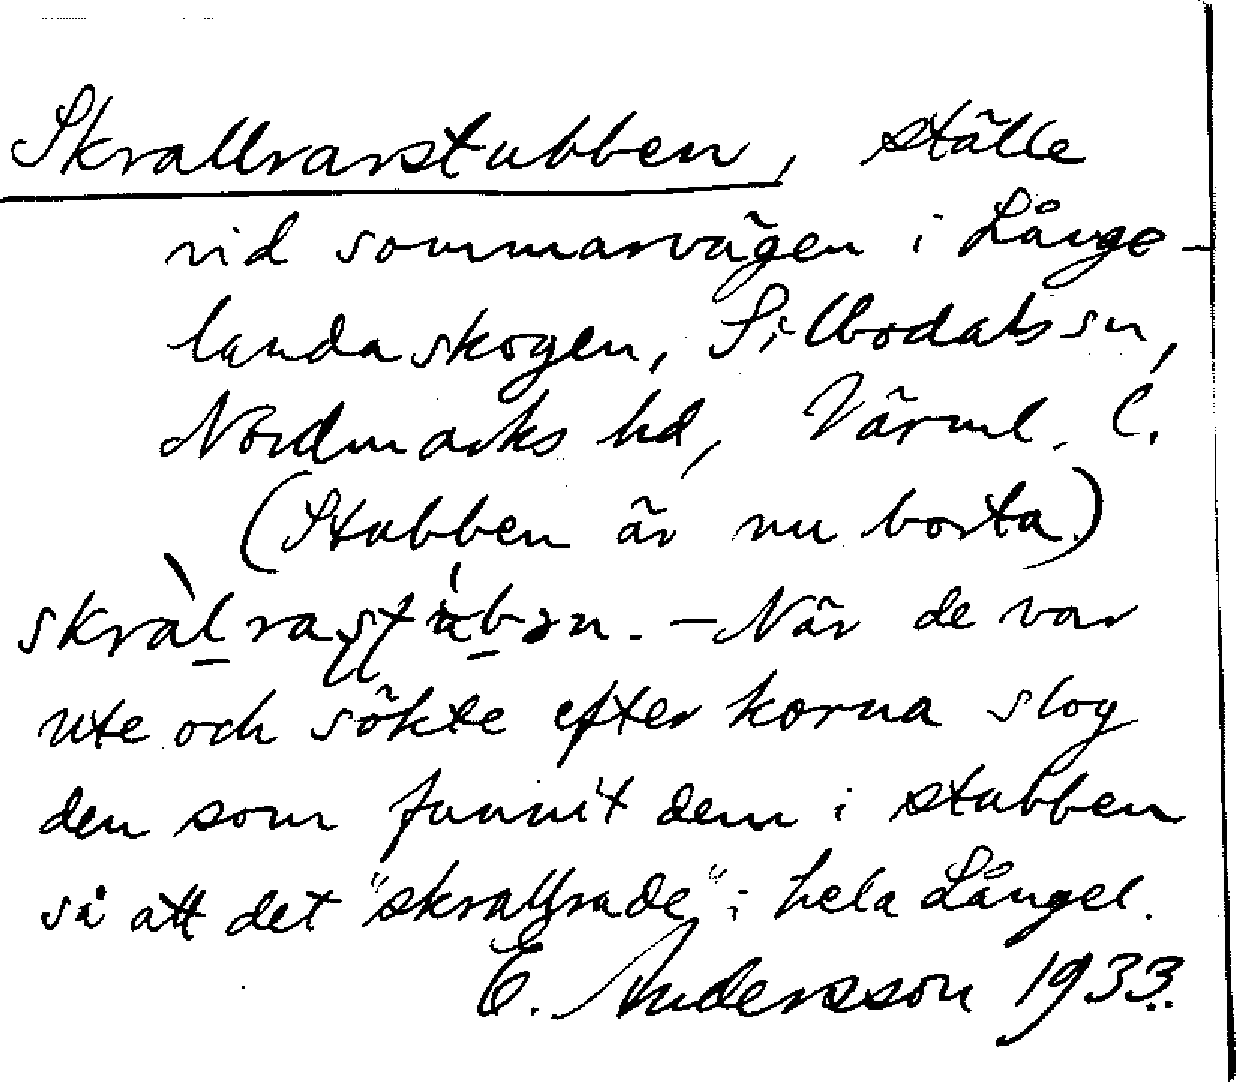 Skrallrarstubben, ställe
vid sommarvägen i Långe-
landaskogen, Silbodals sn,
Nordmarks hd, Värml. l.
(Stubben är nu borta.)
skralrastubən. – När de var
ute och sökte efter korna slog
den som funnit dem i stubben
så att det "skrallrade" i hela Långel.
E. Andersson 1933.